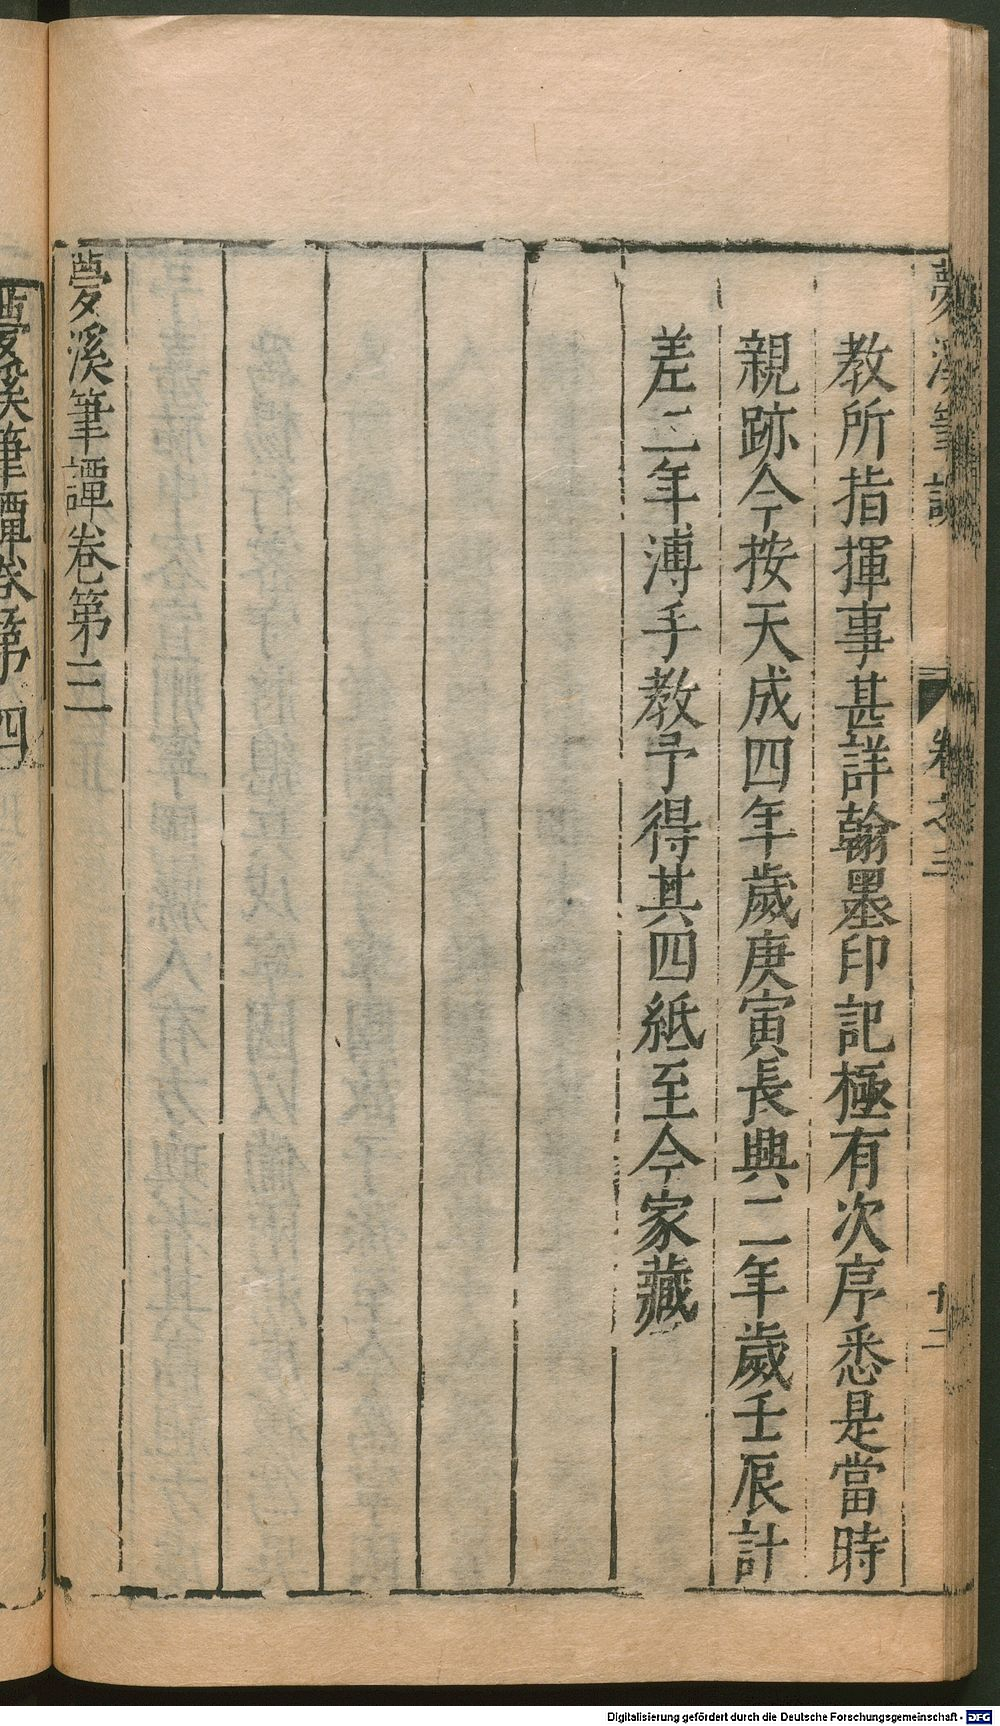 夢溪筆談
卷之三
十二
教所指揮事甚詳翰墨印記極有次序悉是當時
親跡今按天成四年歲庚寅長興二年歲壬辰計
差二年溥手教予得其四紙至今家藏
夢溪筆譚卷第三
夢溪筆譚卷第四
Digitalisierung gefördert durch die Deutsche Forschungsgemeinschaft - DFG